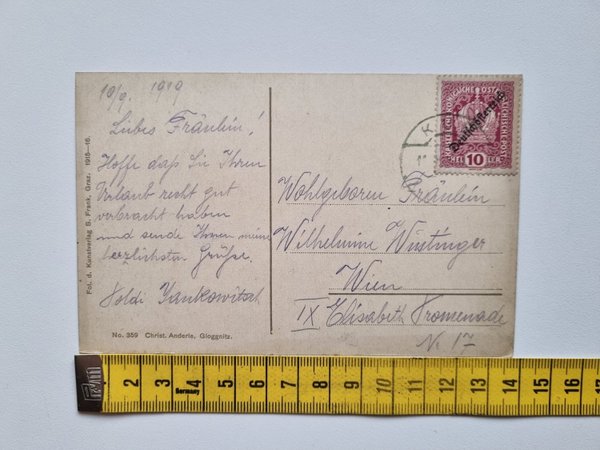 10/9. 1919
Liebes Fräulein!
Hoffe daß Sie Ihren
Urlaub recht gut
verbracht haben
und sende Ihnen meine
herzlichsten Grüße.
Poldi Jankowitsch
Fol. d. Kunstverlag S. Frank, Graz. 1915–16.
No. 359 Christ. Anderle, Gloggnitz.
KAISERLICHE KÖNIGLICHE ÖSTERREICHISCHE POST
Deutschösterreich
HELLER
10
K
Wohlgeboren Fräulein
Wilhelmine Winttinger
Wien
IX Elisabeth Promenade
Nr. 17
1 2 3 4 5 6 7 8 9 10 11 12 13 14 15 16
Germany